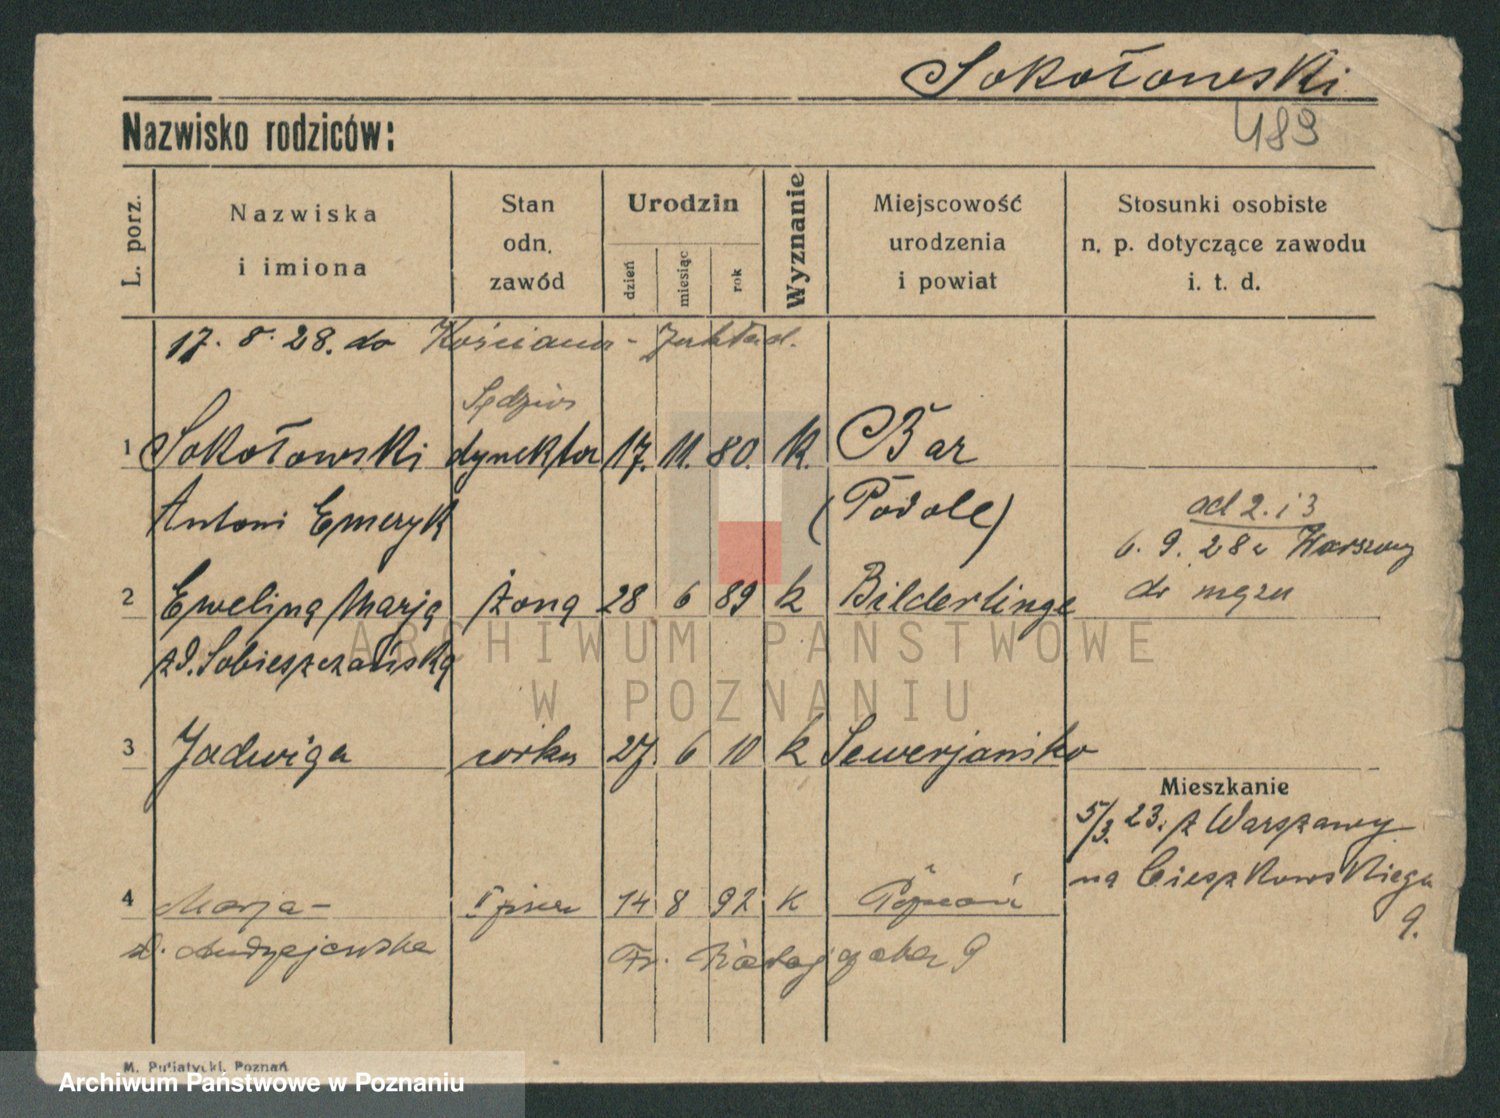 Sokołowski
489
Nazwisko rodziców:
L. porz.
Nazwiska
i imiona
Stan
odn.
zawód
Urodzin
dzień
miesiąc
rok
Wyznanie
Miejscowość
urodzenia
i powiat
Stosunki osobiste
n. p. dotyczące zawodu
i. t. d.
17. 8. 28. do Kościana - Zakład.
Sędzia
1 Sokołowski dyrektor 17. 11. 80. k. Bar
Antoni Emeryk (Podole)
od 2. i 3
6. 9. 28 z Warszawy
do męza
2 Ewelina Marja żona 28 6 89 k Bilderlinge
z d. Sobieszczańska
3 Jadwiga córka 27 6 10 k Sewerjanisko
Mieszkanie
5/3. 23. z Warszawy
na Cieszkowskiego
9.
4 Marja- II 14 8 92 k Poznań
z d. Andrzejewska Fr. Ratajczaka 9
M. Putiatycki, Poznań
ARCHIWUM PAŃSTWOWE
W POZNANIU
Archiwum Państwowe w Poznaniu